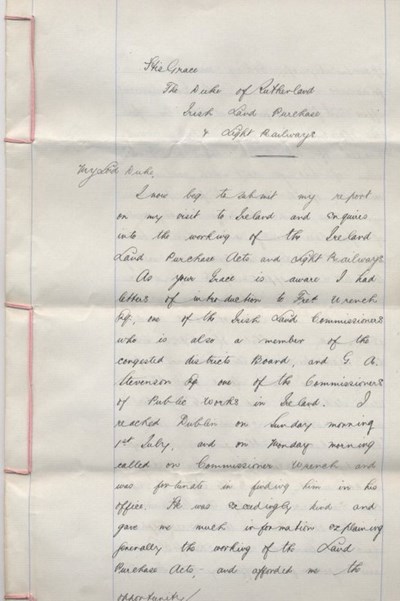 His Grace
The Duke of Sutherland
Irish Land Purchase
& Light Railways
My Lord Duke,
I now beg to submit my report
on my visit to Ireland and enquiries
into the working of the Ireland
Land Purchase Acts and Light Railways
As your Grace is aware I had
letters of introduction to Fred Wrench
Esq. one of the Irish Land Commissioners
who is also a member of the
congested districts Board, and G. A.
Stevenson Esq one of the Commissioners
of Public Works in Ireland. I
reached Dublin on Sunday morning
1st July, and on Monday morning
called on Commissioner Wrench and
was fortunate in finding him in his
office. He was exceedingly kind and
gave me much information explaining
generally the working of the Land
Purchase Acts, and afforded me the
opportunity/